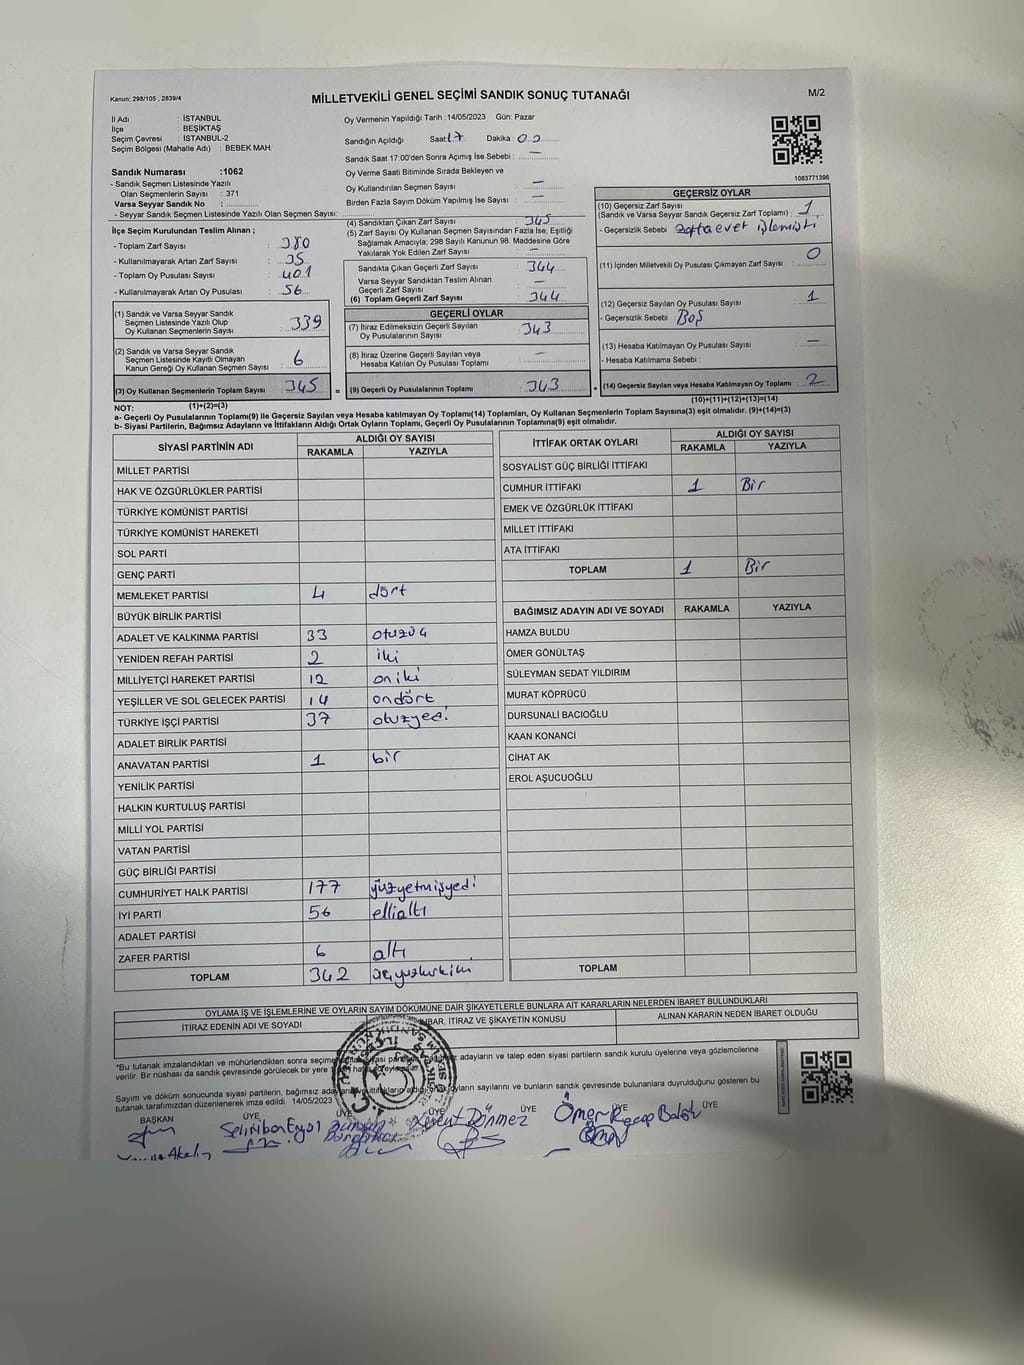 Kanun; 298/105 , 2839/4
MİLLETVEKİLİ GENEL SEÇİMİ SANDIK SONUÇ TUTANAĞI
M/2
İl Adı : İSTANBUL
İlçe : BEŞİKTAŞ
Seçim Çevresi : İSTANBUL-2
Seçim Bölgesi (Mahalle Adı) : BEBEK MAH.
Sandık Numarası :1062
- Sandık Seçmen Listesinde Yazılı
Olan Seçmenlerin Sayısı : 371
Varsa Seyyar Sandık No :
- Seyyar Sandık Seçmen Listesinde Yazılı Olan Seçmen Sayısı:
İlçe Seçim Kurulundan Teslim Alınan ;
- Toplam Zarf Sayısı : 380
- Kullanılmayarak Artan Zarf Sayısı : 35
- Toplam Oy Pusulası Sayısı : 401
- Kullanılmayarak Artan Oy Pusulası : 56
(1) Sandık ve Varsa Seyyar Sandık
Seçmen Listesinde Yazılı Olup
Oy Kullanan Seçmenlerin Sayısı : 339
(2) Sandık ve Varsa Seyyar Sandık
Seçmen Listesinde Kayıtlı Olmayan
Kanun Gereği Oy Kullanan Seçmen Sayısı : 6
(3) Oy Kullanan Seçmenlerin Toplam Sayısı : 345
(1)+(2)=(3)
Oy Vermenin Yapıldığı Tarih :14/05/2023 Gün: Pazar
Sandığın Açıldığı Saat: 17 Dakika : 00
Sandık Saat 17:00'den Sonra Açımış İse Sebebi : –
Oy Verme Saati Bitiminde Sırada Bekleyen ve
Oy Kullandırılan Seçmen Sayısı : –
Birden Fazla Sayım Döküm Yapılmış İse Sayısı : –
(4) Sandıktan Çıkan Zarf Sayısı : 345
(5) Zarf Sayısı Oy Kullanan Seçmen Sayısından Fazla İse, Eşitliği
Sağlamak Amacıyla; 298 Sayılı Kanunun 98. Maddesine Göre
Yakılarak Yok Edilen Zarf Sayısı : –
Sandıkta Çıkan Geçerli Zarf Sayısı : 344
Varsa Seyyar Sandıktan Teslim Alınan
Geçerli Zarf Sayısı : –
(6) Toplam Geçerli Zarf Sayısı : 344
GEÇERLİ OYLAR
(7) İtiraz Edilmeksizin Geçerli Sayılan
Oy Pusulasının Sayısı : 343
(8) İtiraz Üzerine Geçerli Sayılan veya
Hesaba Katılan Oy Pusulası Toplamı : –
= (9) Geçerli Oy Pusulalarının Toplamı : 343 +
1083771396
GEÇERSİZ OYLAR
(10) Geçersiz Zarf Sayısı
(Sandık ve Varsa Seyyar Sandık Geçersiz Zarf Toplamı) : 1
- Geçersizlik Sebebi : zarfta evet işlemişti
(11) İçinden Milletvekili Oy Pusulası Çıkmayan Zarf Sayısı : 0
(12) Geçersiz Sayılan Oy Pusulası Sayısı : 1
- Geçersizlik Sebebi : Boş
(13) Hesaba Katılmayan Oy Pusulası Sayısı : –
- Hesaba Katılmama Sebebi :
(14) Geçersiz Sayılan veya Hesaba Katılmayan Oy Toplamı : 2
(10)+(11)+(12)+(13)=(14)
NOT:
a- Geçerli Oy Pusulalarının Toplamı(9) ile Geçersiz Sayılan veya Hesaba katılmayan Oy Toplamı(14) Toplamları, Oy Kullanan Seçmenlerin Toplam Sayısına(3) eşit olmalıdır. (9)+(14)=(3)
b- Siyasi Partilerin, Bağımsız Adayların ve İttifakların Aldığı Ortak Oyların Toplamı, Geçerli Oy Pusulalarının Toplamına(9) eşit olmalıdır.
SİYASİ PARTİNİN ADI
ALDIĞI OY SAYISI
RAKAMLA YAZIYLA
MİLLET PARTİSİ
HAK VE ÖZGÜRLÜKLER PARTİSİ
TÜRKİYE KOMÜNİST PARTİSİ
TÜRKİYE KOMÜNİST HAREKETİ
SOL PARTİ
GENÇ PARTİ
MEMLEKET PARTİSİ 4 dört
BÜYÜK BİRLİK PARTİSİ
ADALET VE KALKINMA PARTİSİ 33 otuzüç
YENİDEN REFAH PARTİSİ 2 iki
MİLLİYETÇİ HAREKET PARTİSİ 12 oniki
YEŞİLLER VE SOL GELECEK PARTİSİ 14 ondört
TÜRKİYE İŞÇİ PARTİSİ 37 otuzyedi
ADALET BİRLİK PARTİSİ
ANAVATAN PARTİSİ 1 bir
YENİLİK PARTİSİ
HALKIN KURTULUŞ PARTİSİ
MİLLİ YOL PARTİSİ
VATAN PARTİSİ
GÜÇ BİRLİĞİ PARTİSİ
CUMHURİYET HALK PARTİSİ 177 yüzyetmişyedi
İYİ PARTİ 56 ellialtı
ADALET PARTİSİ
ZAFER PARTİSİ 6 altı
TOPLAM 342 üçyüzkırkiki
İTTİFAK ORTAK OYLARI
ALDIĞI OY SAYISI
RAKAMLA YAZIYLA
SOSYALİST GÜÇ BİRLİĞİ İTTİFAKI
CUMHUR İTTİFAKI 1 Bir
EMEK VE ÖZGÜRLÜK İTTİFAKI
MİLLET İTTİFAKI
ATA İTTİFAKI
TOPLAM 1 Bir
BAĞIMSIZ ADAYIN ADI VE SOYADI RAKAMLA YAZIYLA
HAMZA BULDU
ÖMER GÖNÜLTAŞ
SÜLEYMAN SEDAT YILDIRIM
MURAT KÖPRÜCÜ
DURSUNALİ BACIOĞLU
KAAN KONANCİ
CİHAT AK
EROL AŞUCUOĞLU
TOPLAM
OYLAMA İŞ VE İŞLEMLERİNE VE OYLARIN SAYIM DÖKÜMÜNE DAİR ŞİKAYETLERLE BUNLARA AİT KARARLARIN NELERDEN İBARET BULUNDUKLARI
İTİRAZ EDENİN ADI VE SOYADI İHBAR, İTİRAZ VE ŞİKAYETİN KONUSU ALINAN KARARIN NEDEN İBARET OLDUĞU
*Bu tutanak imzalandıktan ve mühürlendikten sonra seçime adayların ve talep eden siyasi partilerin sandık kurulu üyelerine veya gözlemcilerine
verilir. Bir nüshası da sandık çevresinde görülecek bir yere
Sayım ve döküm sonucunda siyasi partilerin, bağımsız adayların sayılarını ve bunların sandık çevresinde bulunanlara duyrulduğunu gösteren bu
tutanak tarafımızdan düzenlenerek imza edildi. 14/05/2023
BAŞKAN ÜYE ÜYE ÜYE ÜYE ÜYE ÜYE
Dönmez Ömer Recep